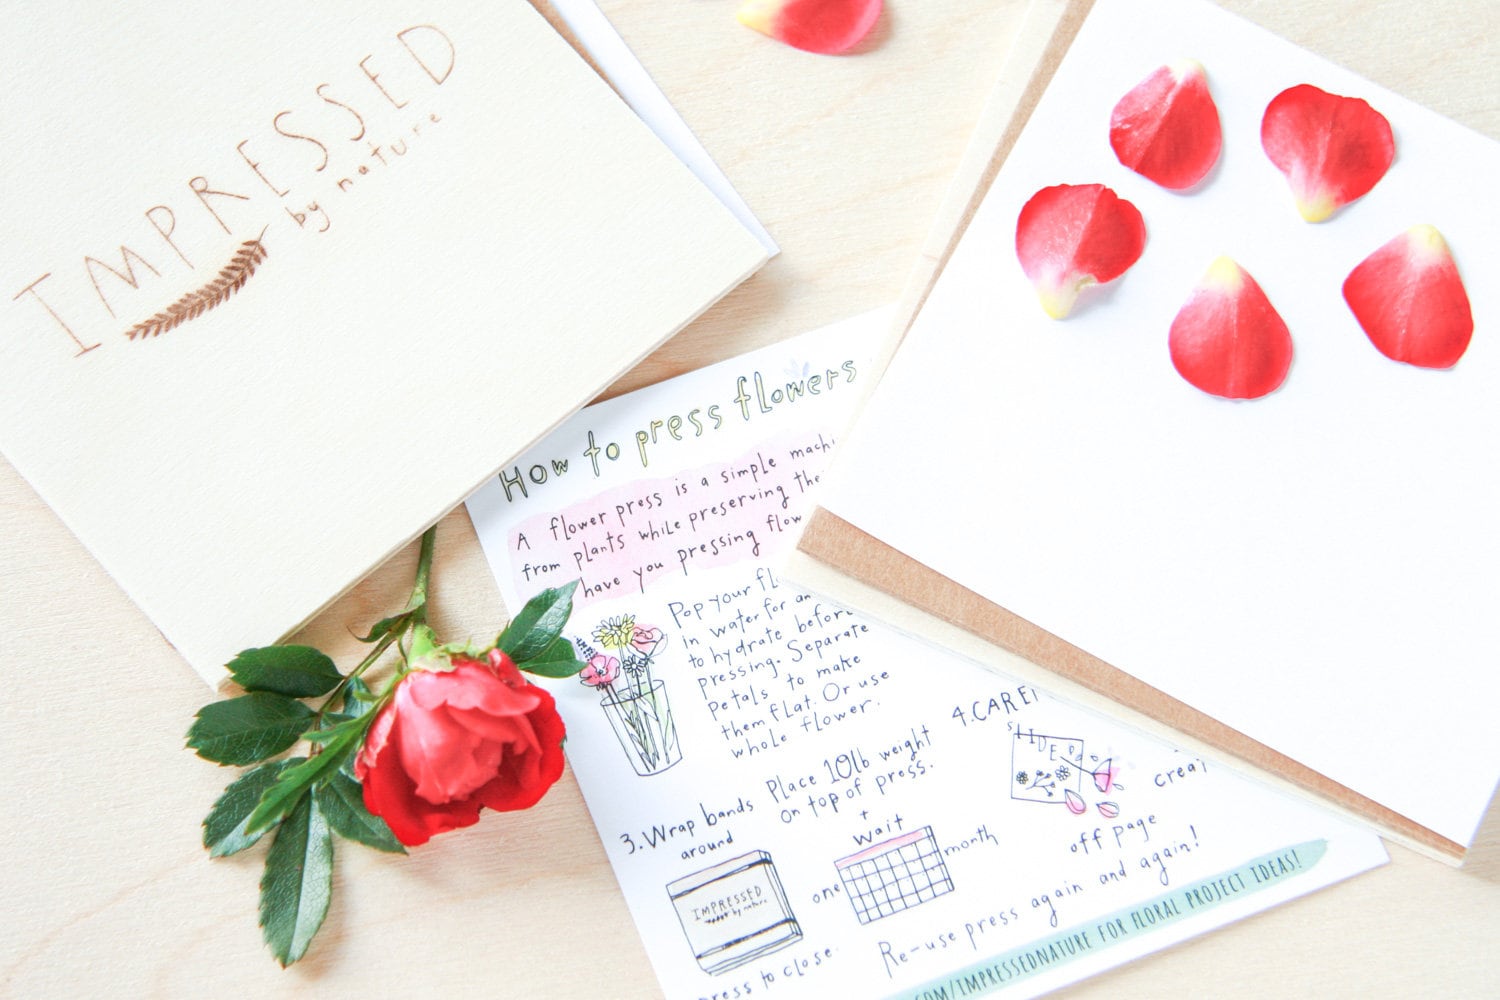 IMPRESSED
by nature
How to press flowers
A flower press is a simple
from plants while preserving
have you pressing
Pop your
in water for
to hydrate before
pressing. Separate
petals to make
them flat. Or use
whole flower.
3. Wrap bands
around
IMPRESSED
by nature
press to close.
Place 10lb weight
on top of press.
+
wait
one
month
4.
SLIDE
off page
Re-use press again and again!
COM/IMPRESSEDNATURE FOR FLORAL PROJECT IDEAS!